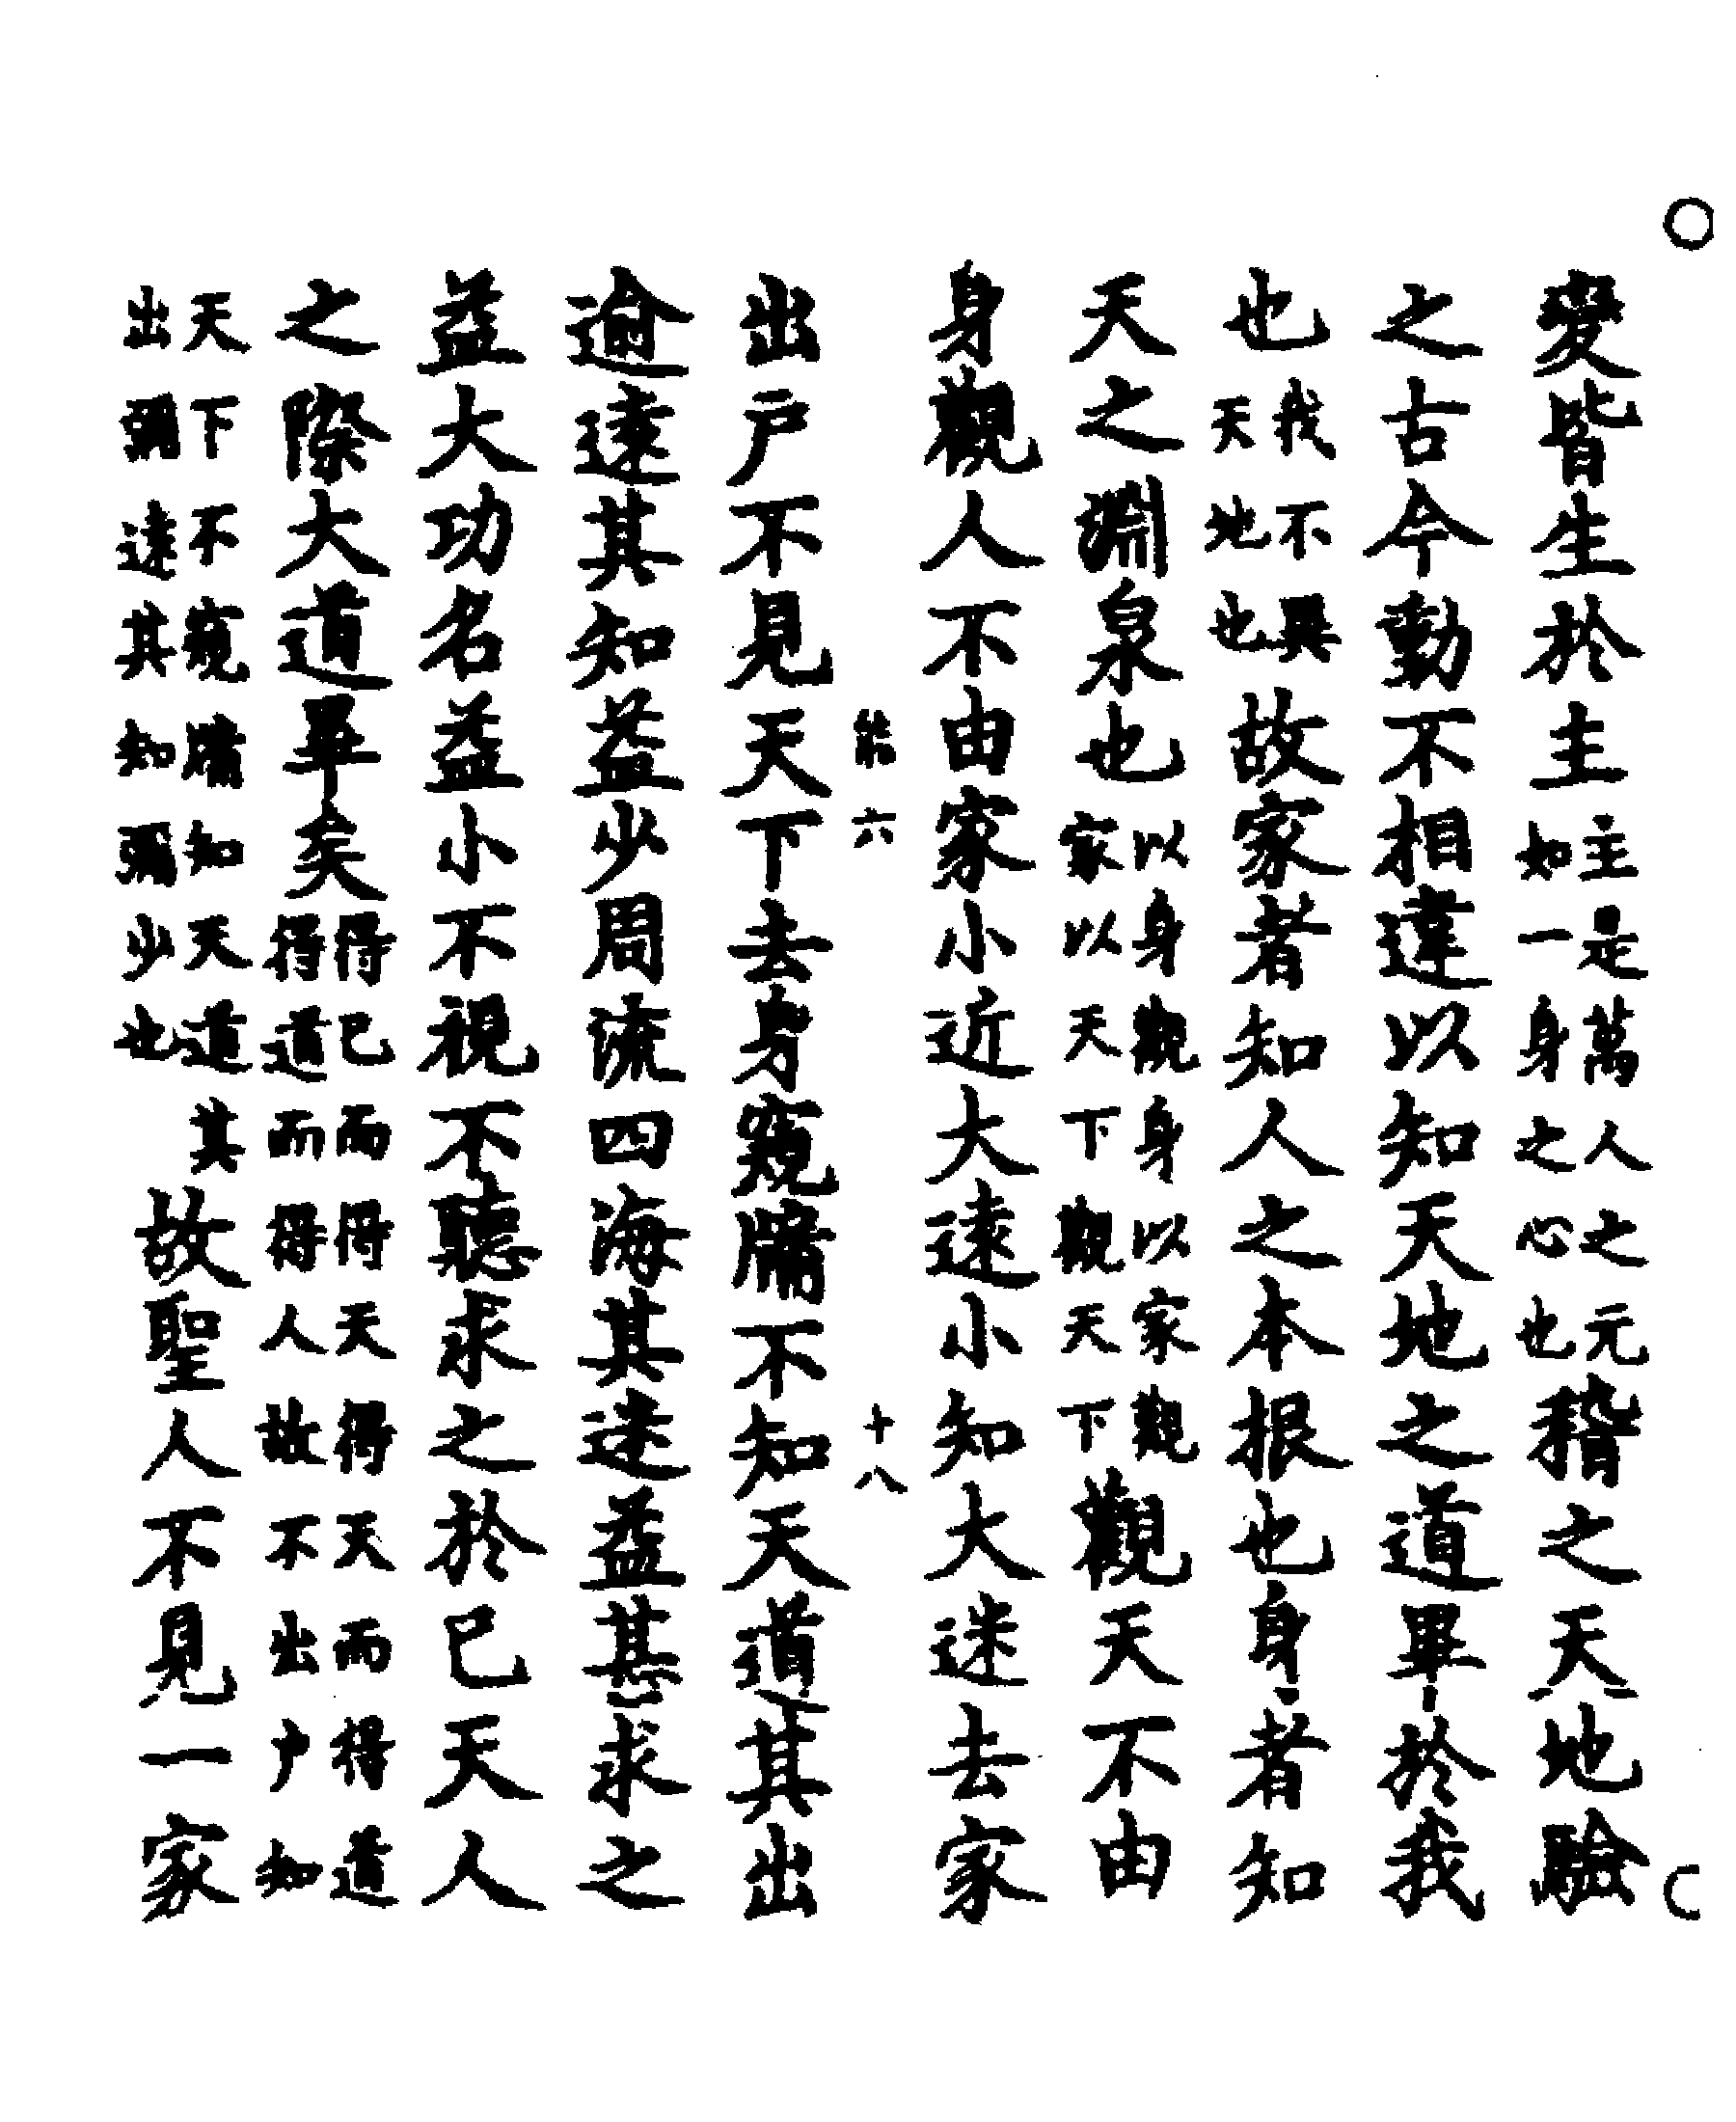 變皆生於主主是萬人之元如一身之心也稽之天地驗
之古今動不相違以知天地之道畢於我
也我不異天地也故家者知人之本根也身者知
天之淵泉也以身觀身以家觀家以天下觀天下觀天不由
身觀人不由家小近大遠小知大迷去家
能六 十八
出戶不見天下去身窺牖不知天道其出
逾遠其知益少周流四海其迷益甚求之
益大功名益小不視不聽求之於己天人
之際大道畢矣得己而得天得天而得道得道而得人故不出戶知
天下不窺牖知天道其出彌遠其知彌少也故聖人不見一家